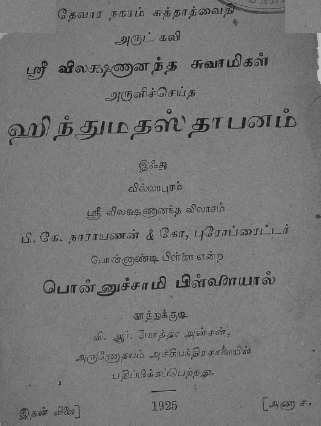 தேவார நகரம் சுத்தாத்வைத
அருட் கவி
ஸ்ரீ விலக்ஷணானந்த சுவாமிகள்
அருளிச்செய்த
ஹிந்துமதஸ்தாபனம்
இஃது
வில்லாபுரம்
ஸ்ரீ விலக்ஷணானந்த விலாசம்
பி. கே. நாராயணன் & கோ, புரோப்ரைட்டர்
பொன்னாண்டி பிள்ளை என்ற
பொன்னுச்சாமி பிள்ளையால்
தூத்துக்குடி
வி. ஆர். மோத்தா அன்சன்,
அருணோதயம் அச்சியந்திரசாலையில்
பதிப்பிக்கப்பெற்றது.
1925
இதன் விலை] [அணா